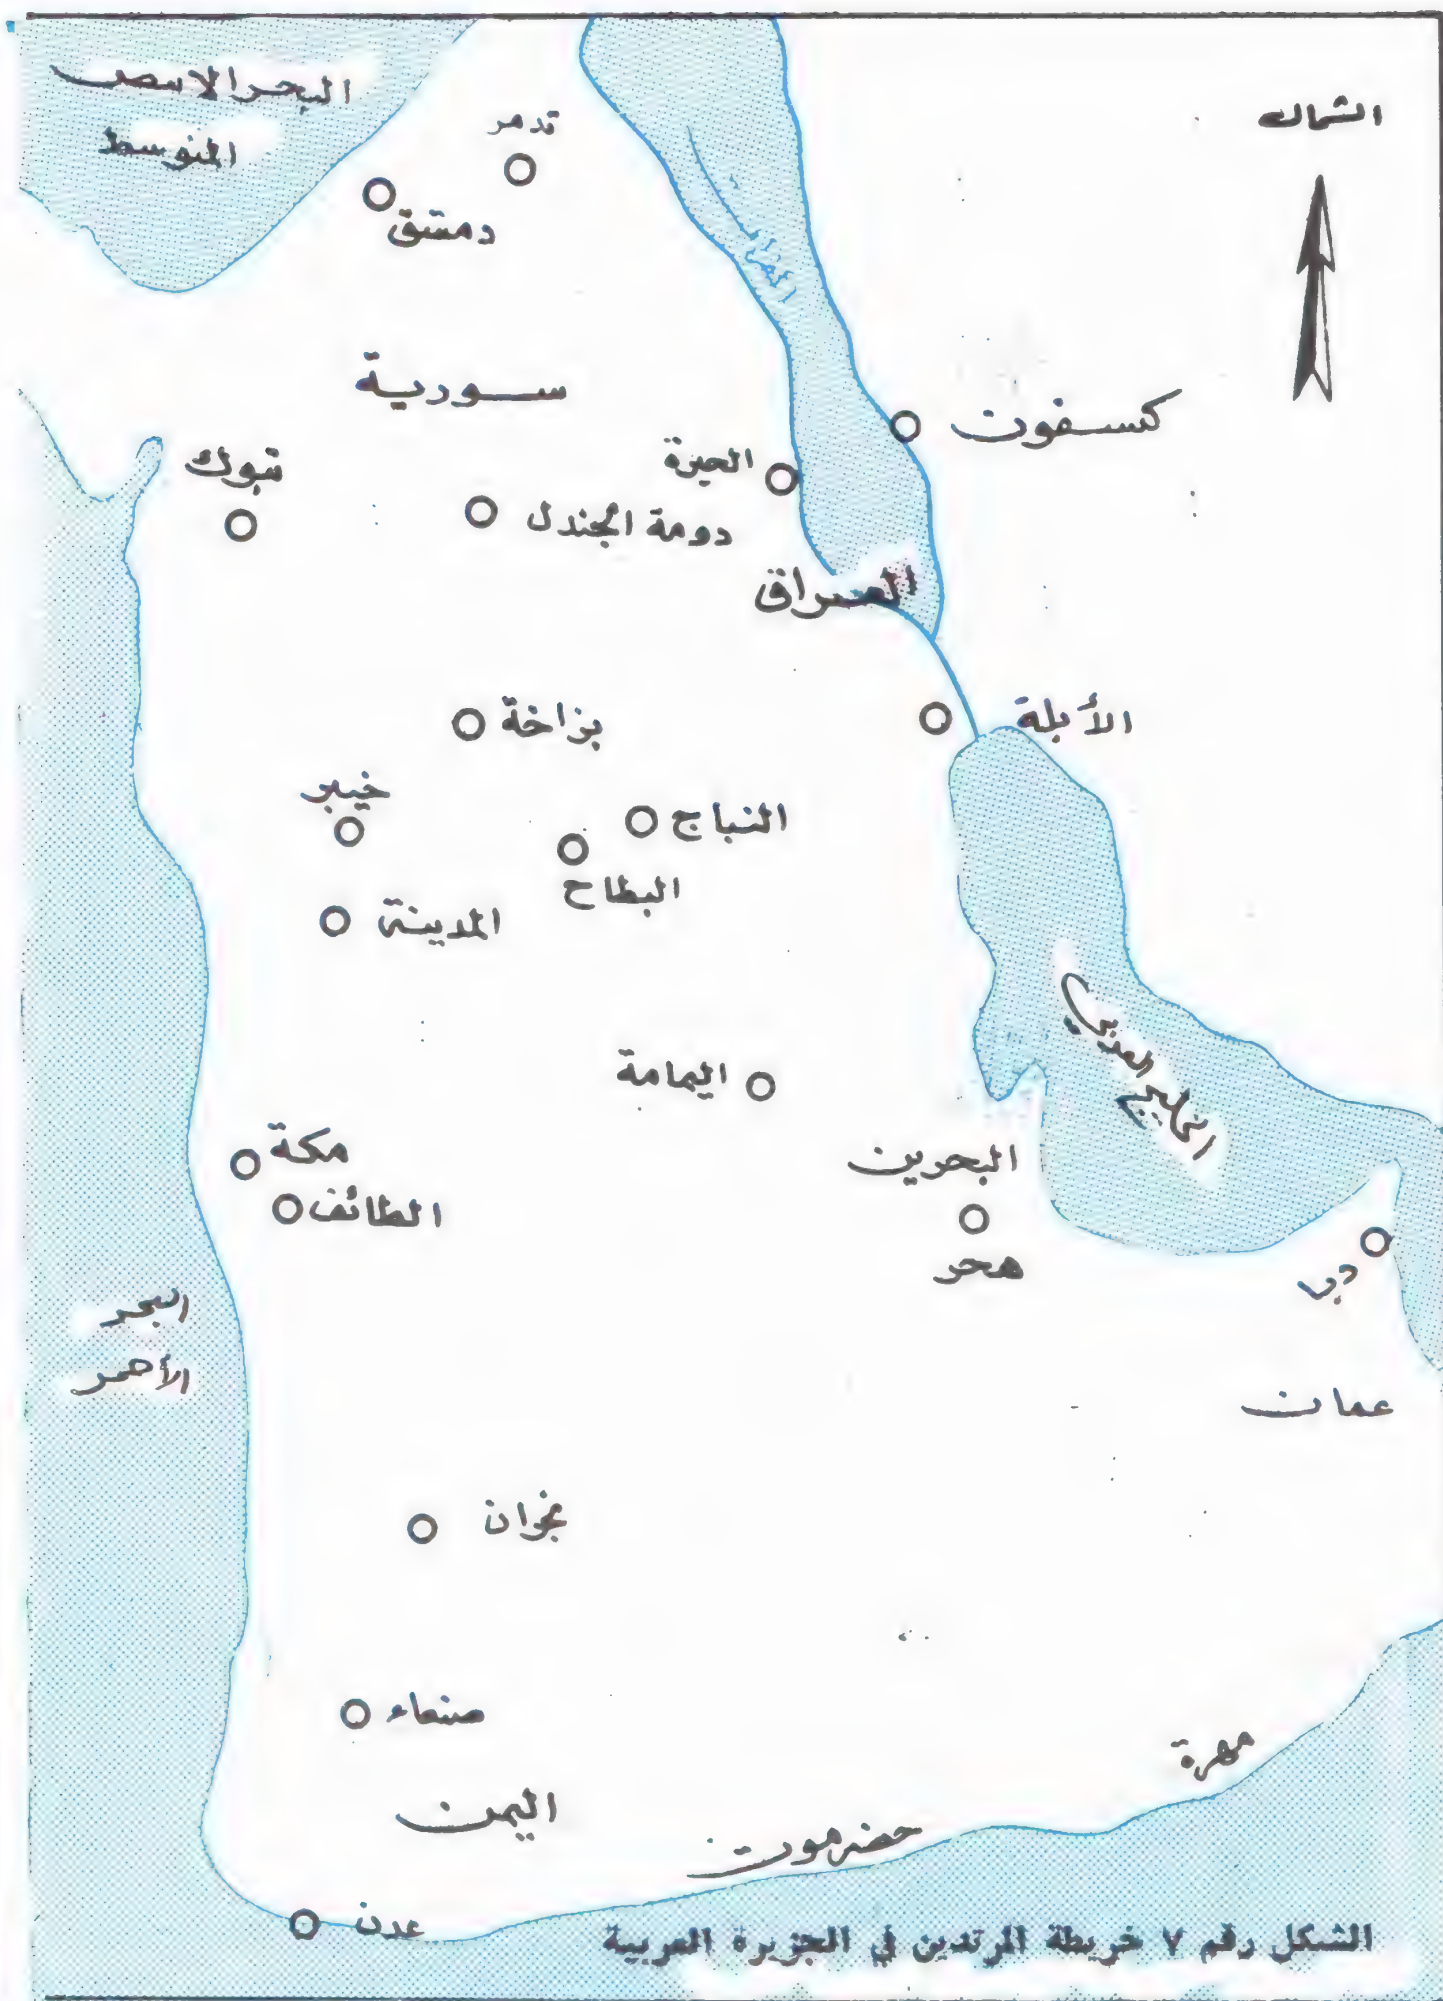 البحر الابيض
المتوسط
الشمال
تدمر
دمشق
الفرات
سورية
كتسفون
الحيرة
تبوك
دومة الجندل
العراق
الأبلة
بزاخة
خيبر
النباج
البطاح
المدينة
الخليج العربي
اليمامة
مكة
البحرين
الطائف
هجر
دبى
البحر
الأحمر
عمان
نجران
صنعاء
مهرة
اليمن
حضرموت
عدن
الشكل رقم ٧ خريطة المرتدين في الجزيرة العربية